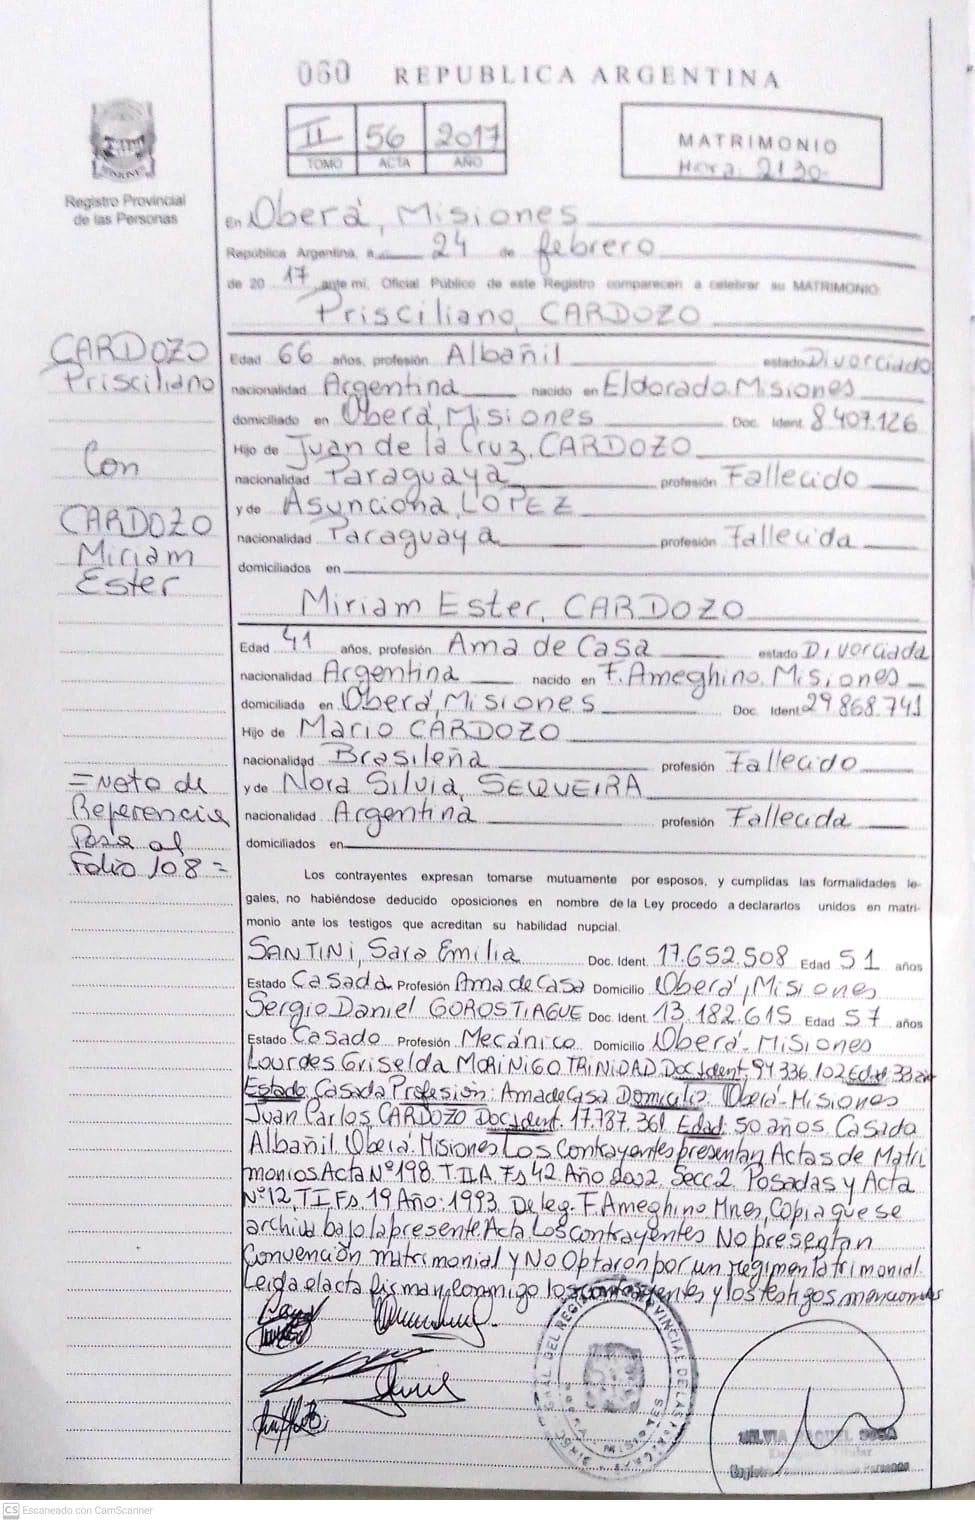 060 REPUBLICA ARGENTINA
II 56 2017
TOMO ACTA AÑO
MATRIMONIO
Hora 21 30
Registro Provincial
de las Personas
En Oberá, Misiones
República Argentina, a 24 de febrero
de 20 17 ante mí, Oficial Público de este Registro comparecen a celebrar su MATRIMONIO
Prisciliano, CARDOZO
CARDOZO
Prisciliano
Con
CARDOZO
Miriam
Ester
Edad 66 años, profesión Albañil estado Divorciado
nacionalidad Argentina nacido en Eldorado Misiones
domiciliado en Oberá, Misiones Doc. Ident. 8.407.126
Hijo de Juan de la Cruz, CARDOZO
nacionalidad Paraguaya profesión Fallecido
y de Asunciona, LOPEZ
nacionalidad Paraguaya profesión Fallecida
domiciliados en
Miriam Ester, CARDOZO
Edad 41 años, profesión Ama de Casa estado Divorciada
nacionalidad Argentina nacido en F. Ameghino. Misiones
domiciliada en Oberá, Misiones Doc. Ident. 29.868.741
Hijo de Mario CARDOZO
nacionalidad Brasileña profesión Fallecido
y de Nora Silvia, SEQUEIRA
nacionalidad Argentina profesión Fallecida
domiciliados en
= Nota de
Referencia
Pasa al
Folio 108 =
Los contrayentes expresan tomarse mutuamente por esposos, y cumplidas las formalidades le-
gales, no habiéndose deducido oposiciones en nombre de la Ley procedo a declararlos unidos en matri-
monio ante los testigos que acreditan su habilidad nupcial.
SANTINI, Sara Emilia Doc. Ident. 17.652.508 Edad 51 años
Estado Casada Profesión Ama de Casa Domicilio Oberá, Misiones
Sergio Daniel GOROSTIAGUE Doc. Ident. 13.182.615 Edad 57 años
Estado Casado Profesión Mecánico Domicilio Oberá - Misiones
Lourdes Griselda MORINIGO TRINIDAD Doc Ident. 94.336.102 Edad 33
Estado Casada Profesión: Ama de Casa Domicilio. Oberá - Misiones
Juan Carlos, CARDOZO Doc Ident. 17.787.361 Edad: 50 años Casado
Albañil. Oberá. Misiones Los Contrayentes presentan Actas de Matri
monios Acta Nº 198. T IIA. Fs 42 Año 2002. Secc. 2. Posadas y Acta
Nº 12, T I, Fs. 19 Año: 1993. Deleg. F. Ameghino Mnes, Copia que se
archiva bajo la presente Acta Los contrayentes No presentan
Convención matrimonial y No Optaron por un regimen Patrimonial.
Leida el acta firman conmigo los contrayentes y los testigos
SILVIA RAQUEL SOSA
CS Escaneado con CamScanner